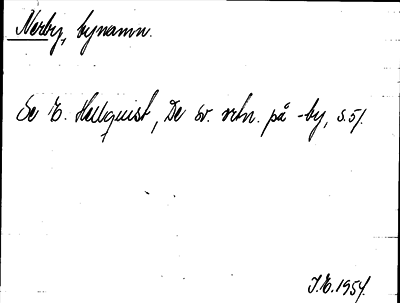 Nerby, bynamn.
Se E. Hellquist, De sv. ortn. på -by, s. 51.
J.E. 1954.